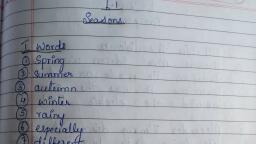 L-1
Seasons
I Words
① Spring
② Summer
③ autumn
④ winter
⑤ rainy
⑥ especially
⑦ different